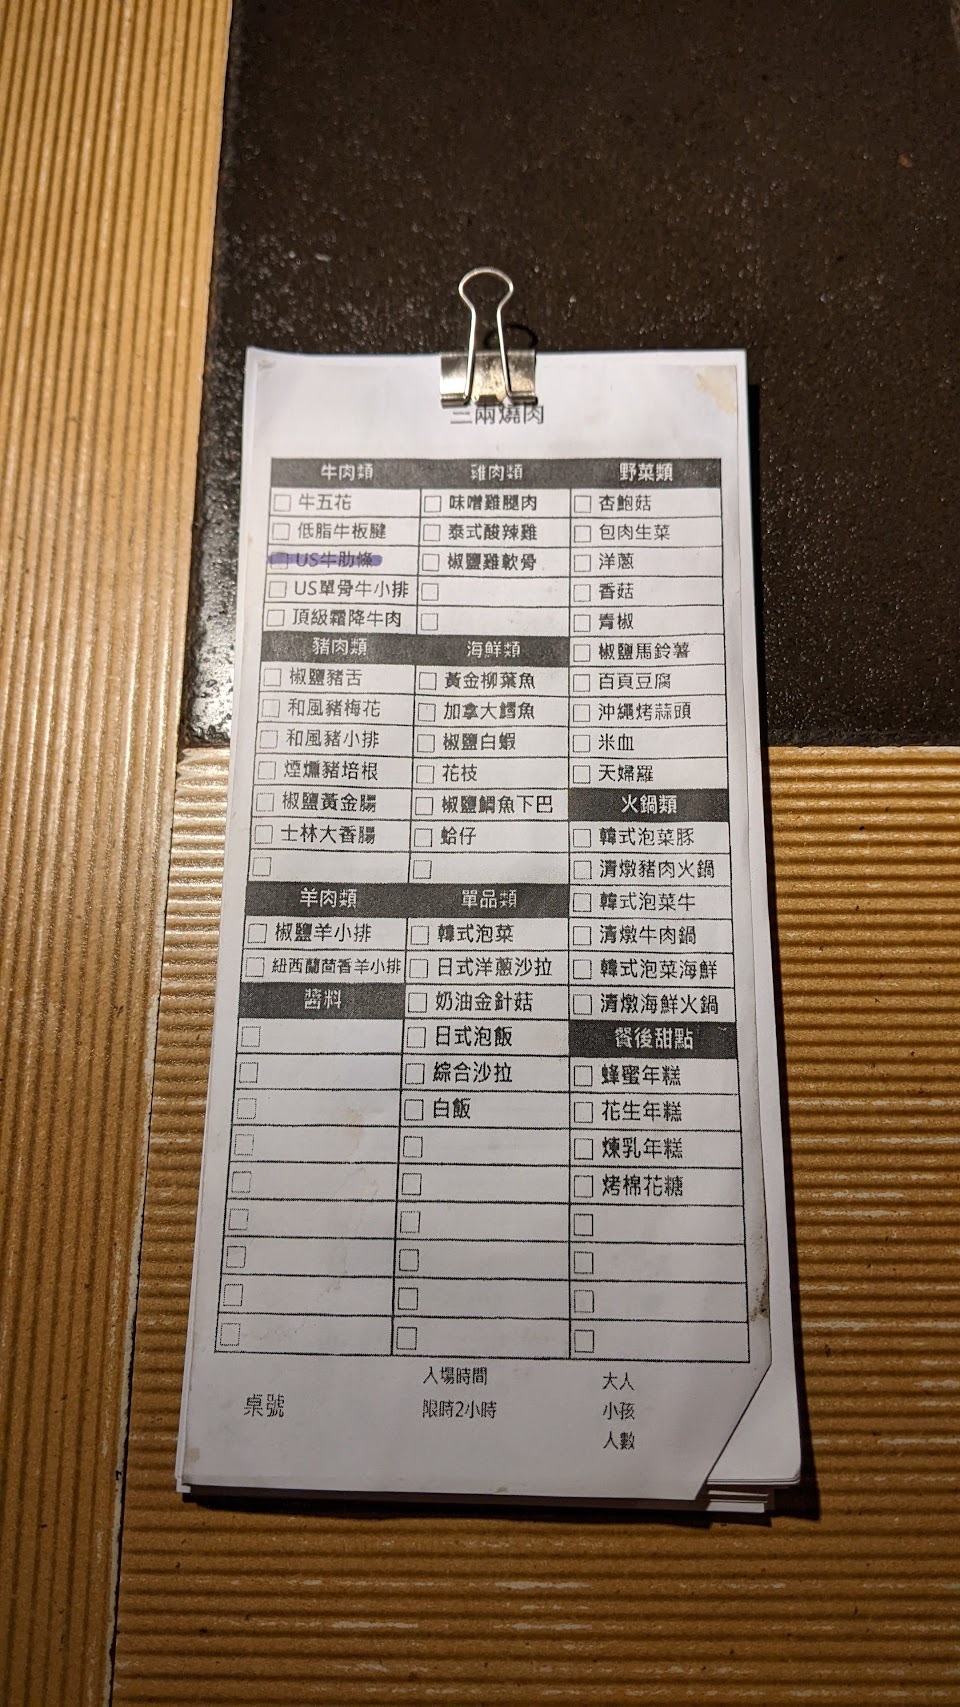 三兩燒肉
牛肉類 雞肉類 野菜類
牛五花 味噌雞腿肉 杏鮑菇
低脂牛板腱 泰式酸辣雞 包肉生菜
US牛肋條 椒鹽雞軟骨 洋蔥
US單骨牛小排 香菇
頂級霜降牛肉 青椒
豬肉類 海鮮類 椒鹽馬鈴薯
椒鹽豬舌 黃金柳葉魚 百頁豆腐
和風豬梅花 加拿大鱈魚 沖繩烤蒜頭
和風豬小排 椒鹽白蝦 米血
煙燻豬培根 花枝 天婦羅
椒鹽黃金腸 椒鹽鯛魚下巴 火鍋類
士林大香腸 蛤仔 韓式泡菜豚
清燉豬肉火鍋
羊肉類 單品類 韓式泡菜牛
椒鹽羊小排 韓式泡菜 清燉牛肉鍋
紐西蘭茴香羊小排 日式洋蔥沙拉 韓式泡菜海鮮
醬料 奶油金針菇 清燉海鮮火鍋
日式泡飯 餐後甜點
綜合沙拉 蜂蜜年糕
白飯 花生年糕
煉乳年糕
烤棉花糖
入場時間 大人
桌號 限時2小時 小孩
人數